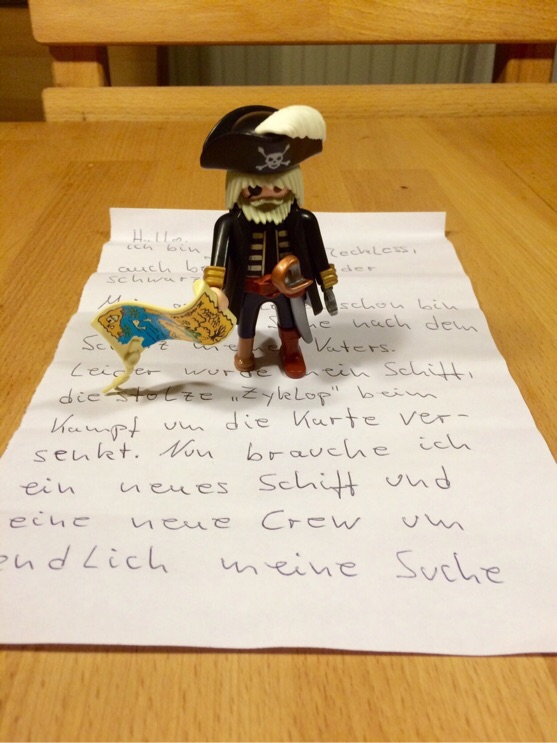 Hallo,
ich bin Reckless,
auch der
schwarz
schon bin
Suche nach dem
Schatz meines Vaters.
Leider wurde mein Schiff,
die stolze „Zyklop" beim
Kampf um die Karte ver-
senkt. Nun brauche ich
ein neues Schiff und
eine neue Crew um
endlich meine Suche